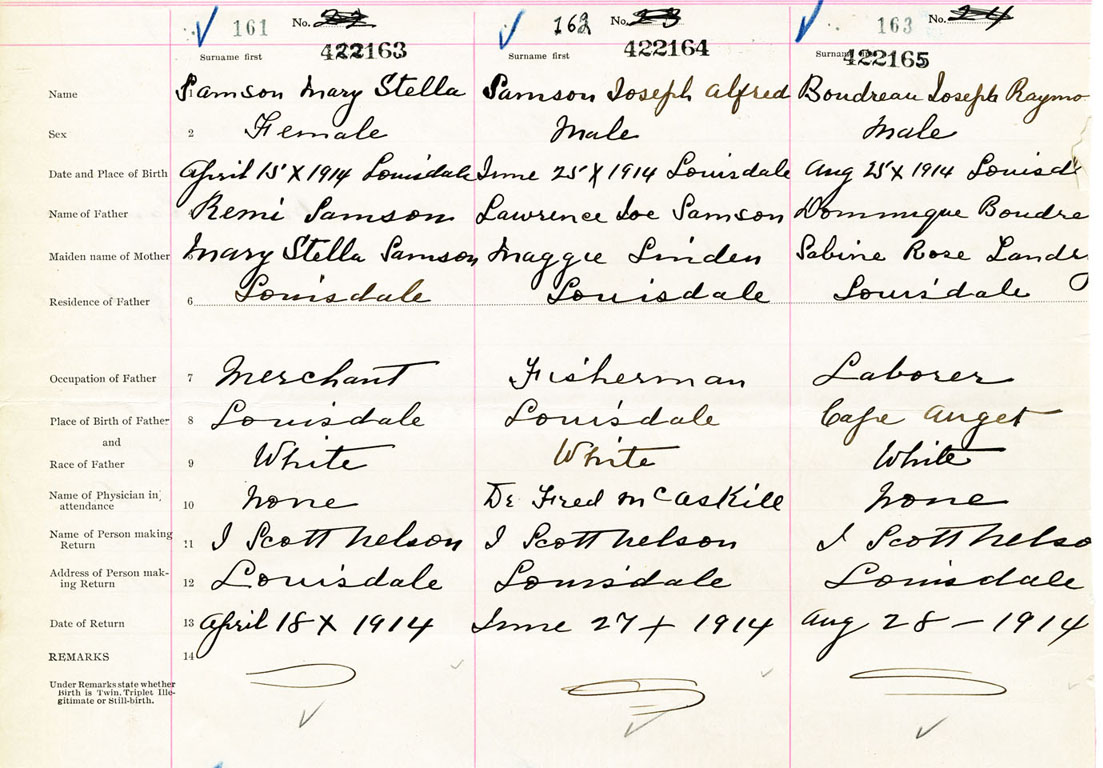 161 No. 22 162 No. 23 163 No. 24
Surname first 422163 Surname first 422164 Surname 422165
Name Samson Mary Stella Samson Joseph Alfred Boudreau Joseph Raymo
Sex 2 Female Male Male
Date and Place of Birth April 15 X 1914 Louisdale June 25 X 1914 Louisdale Aug 25 X 1914 Louisd
Name of Father Remi Samson Lawrence Joe Samson Dominique Boudre
Maiden name of Mother Mary Stella Samson Maggie Linden Sabine Rose Landry
Residence of Father 6 Louisdale Louisdale Louisdale
Occupation of Father 7 Merchant Fisherman Laborer
Place of Birth of Father 8 Louisdale Louisdale Cape Auget
and
Race of Father 9 White White White
Name of Physician in
attendance 10 None Dr Fred McAskill None
Name of Person making
Return 11 J Scott Nelson J Scott Nelson J Scott Nelso
Address of Person mak-
ing Return 12 Louisdale Louisdale Louisdale
Date of Return 13 April 18 X 1914 June 27 + 1914 Aug 28 - 1914
REMARKS 14
Under Remarks state whether
Birth is Twin, Triplet Ille-
gitimate or Still-birth.